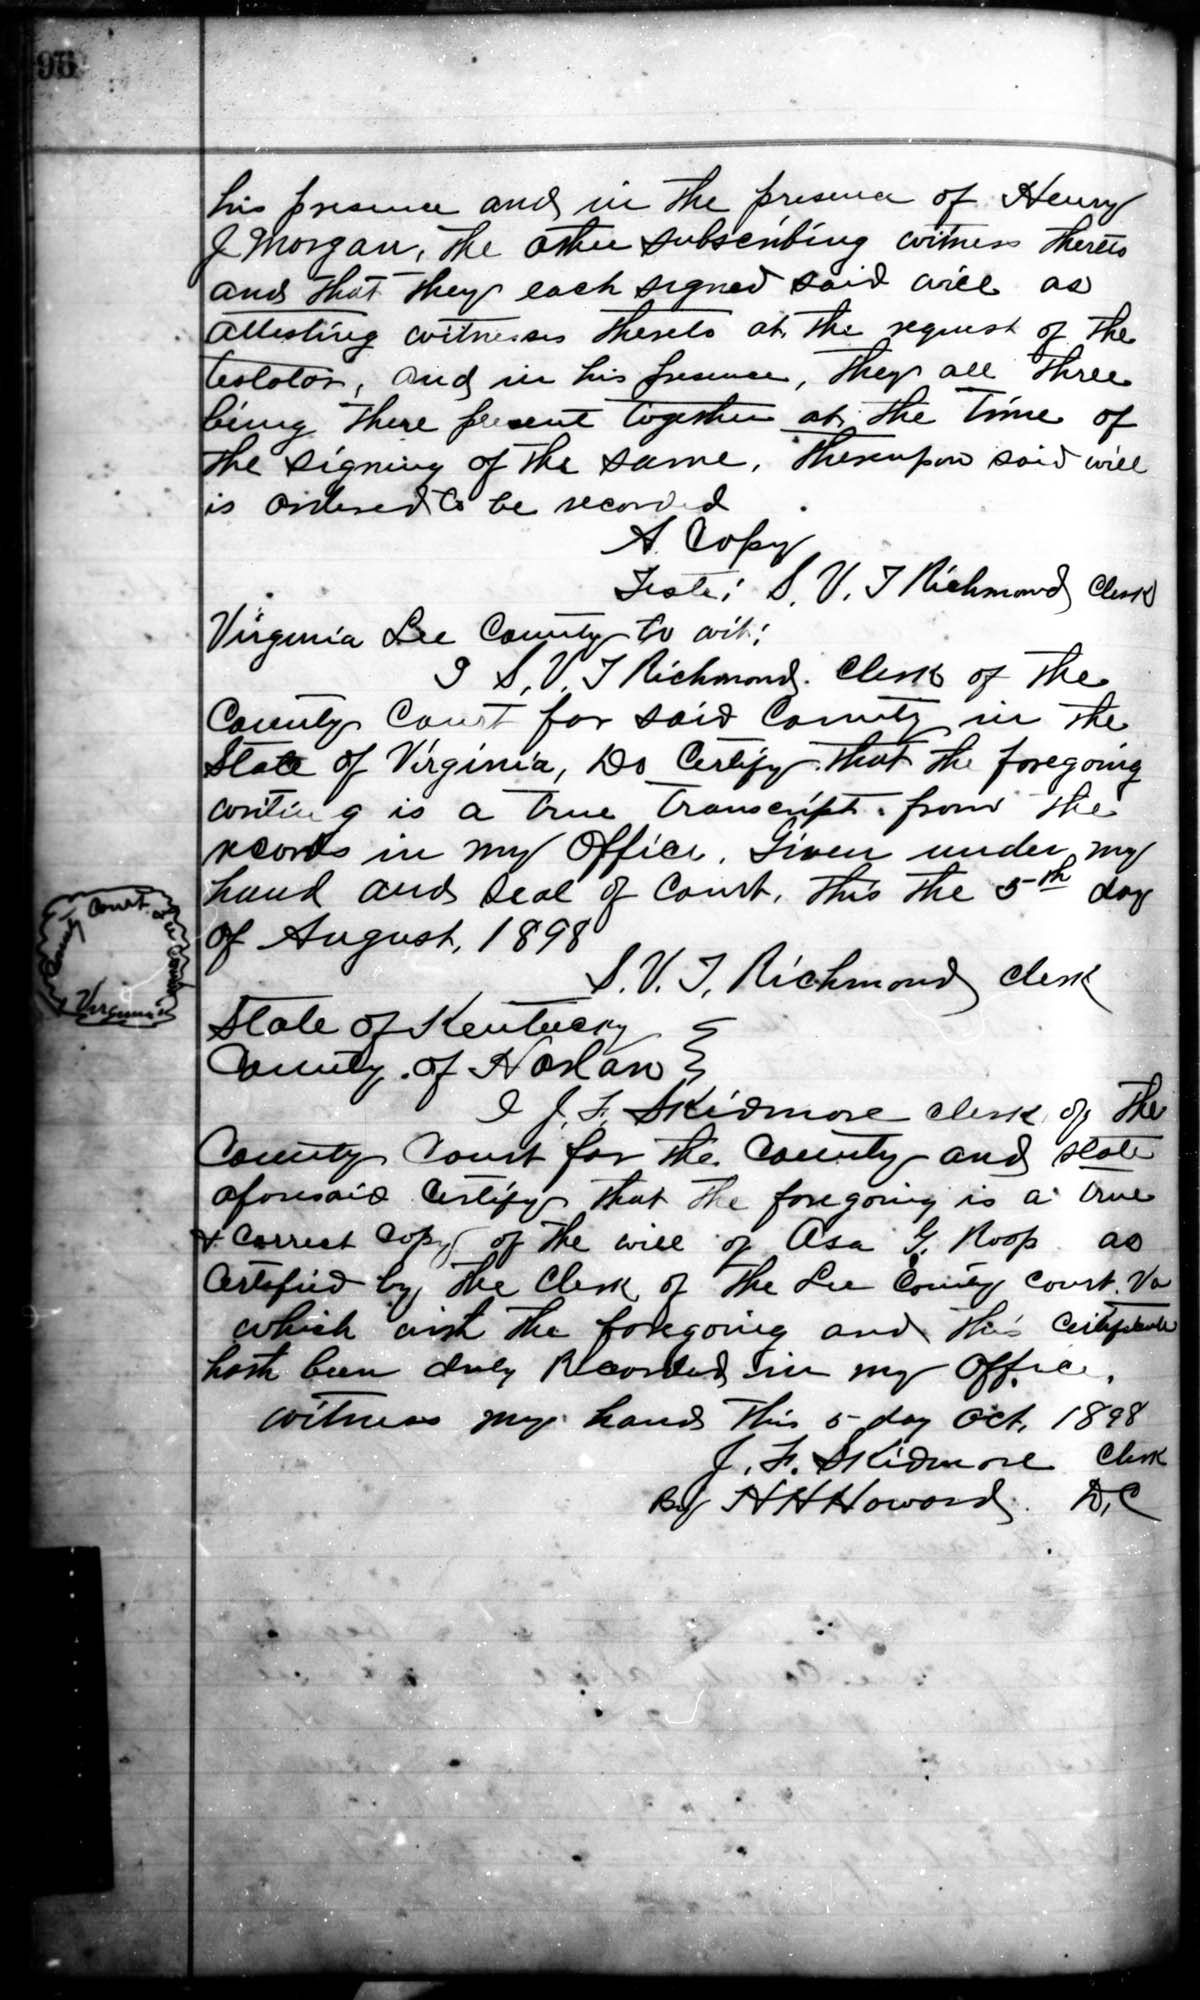 96
his presence and in the presence of Henry
J Morgan, the other subscribing witness thereto
and that they each signed said will as
attesting witnesses thereto at the request of the
testator, and in his presence, they all three
being there present together at the time of
the signing of the same, thereupon said will
is ordered to be recorded
A Copy
Teste: S. V. F Richmond Clerk
Virginia Lee County to wit:
I S, V. F Richmond. Clerk of the
County Court for said County in the
State of Virginia, Do Certify that the foregoing
writing is a true transcript from the
records in my Office. Given under my
hand and seal of Court, this the 5th day
of August, 1898
County Court of Lee County
Virginia
S. V. F, Richmond Clerk
State of Kentucky }
County of Harlan }
I J. F. Skidmore clerk of the
County Court for the County and State
aforesaid Certify that the foregoing is a true
& Correct Copy of the will of Asa G. Roop as
Certified by the Clerk of the Lee County Court. Va
which with the foregoing and this Certificate
hath been duly Recorded in my Office,
witness my hand this 5 day Oct, 1898
J. F. Skidmore Clerk
By H H Howard D,C